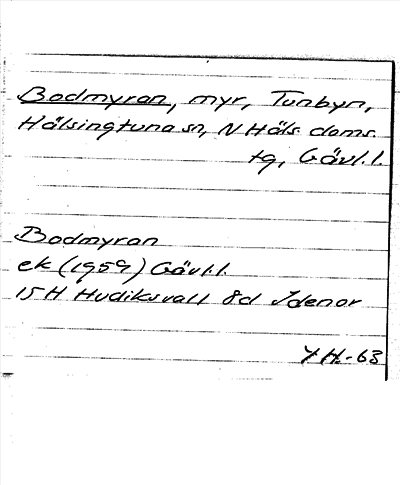 Bodmyran, myr, Tunbyn,
Hälsingtuna sn, N Häls. doms.
tg, Gävl.l.
Bodmyran
ek (1959) Gävl.l.
15H Hudiksvall 8d Idenor
Y H.-63